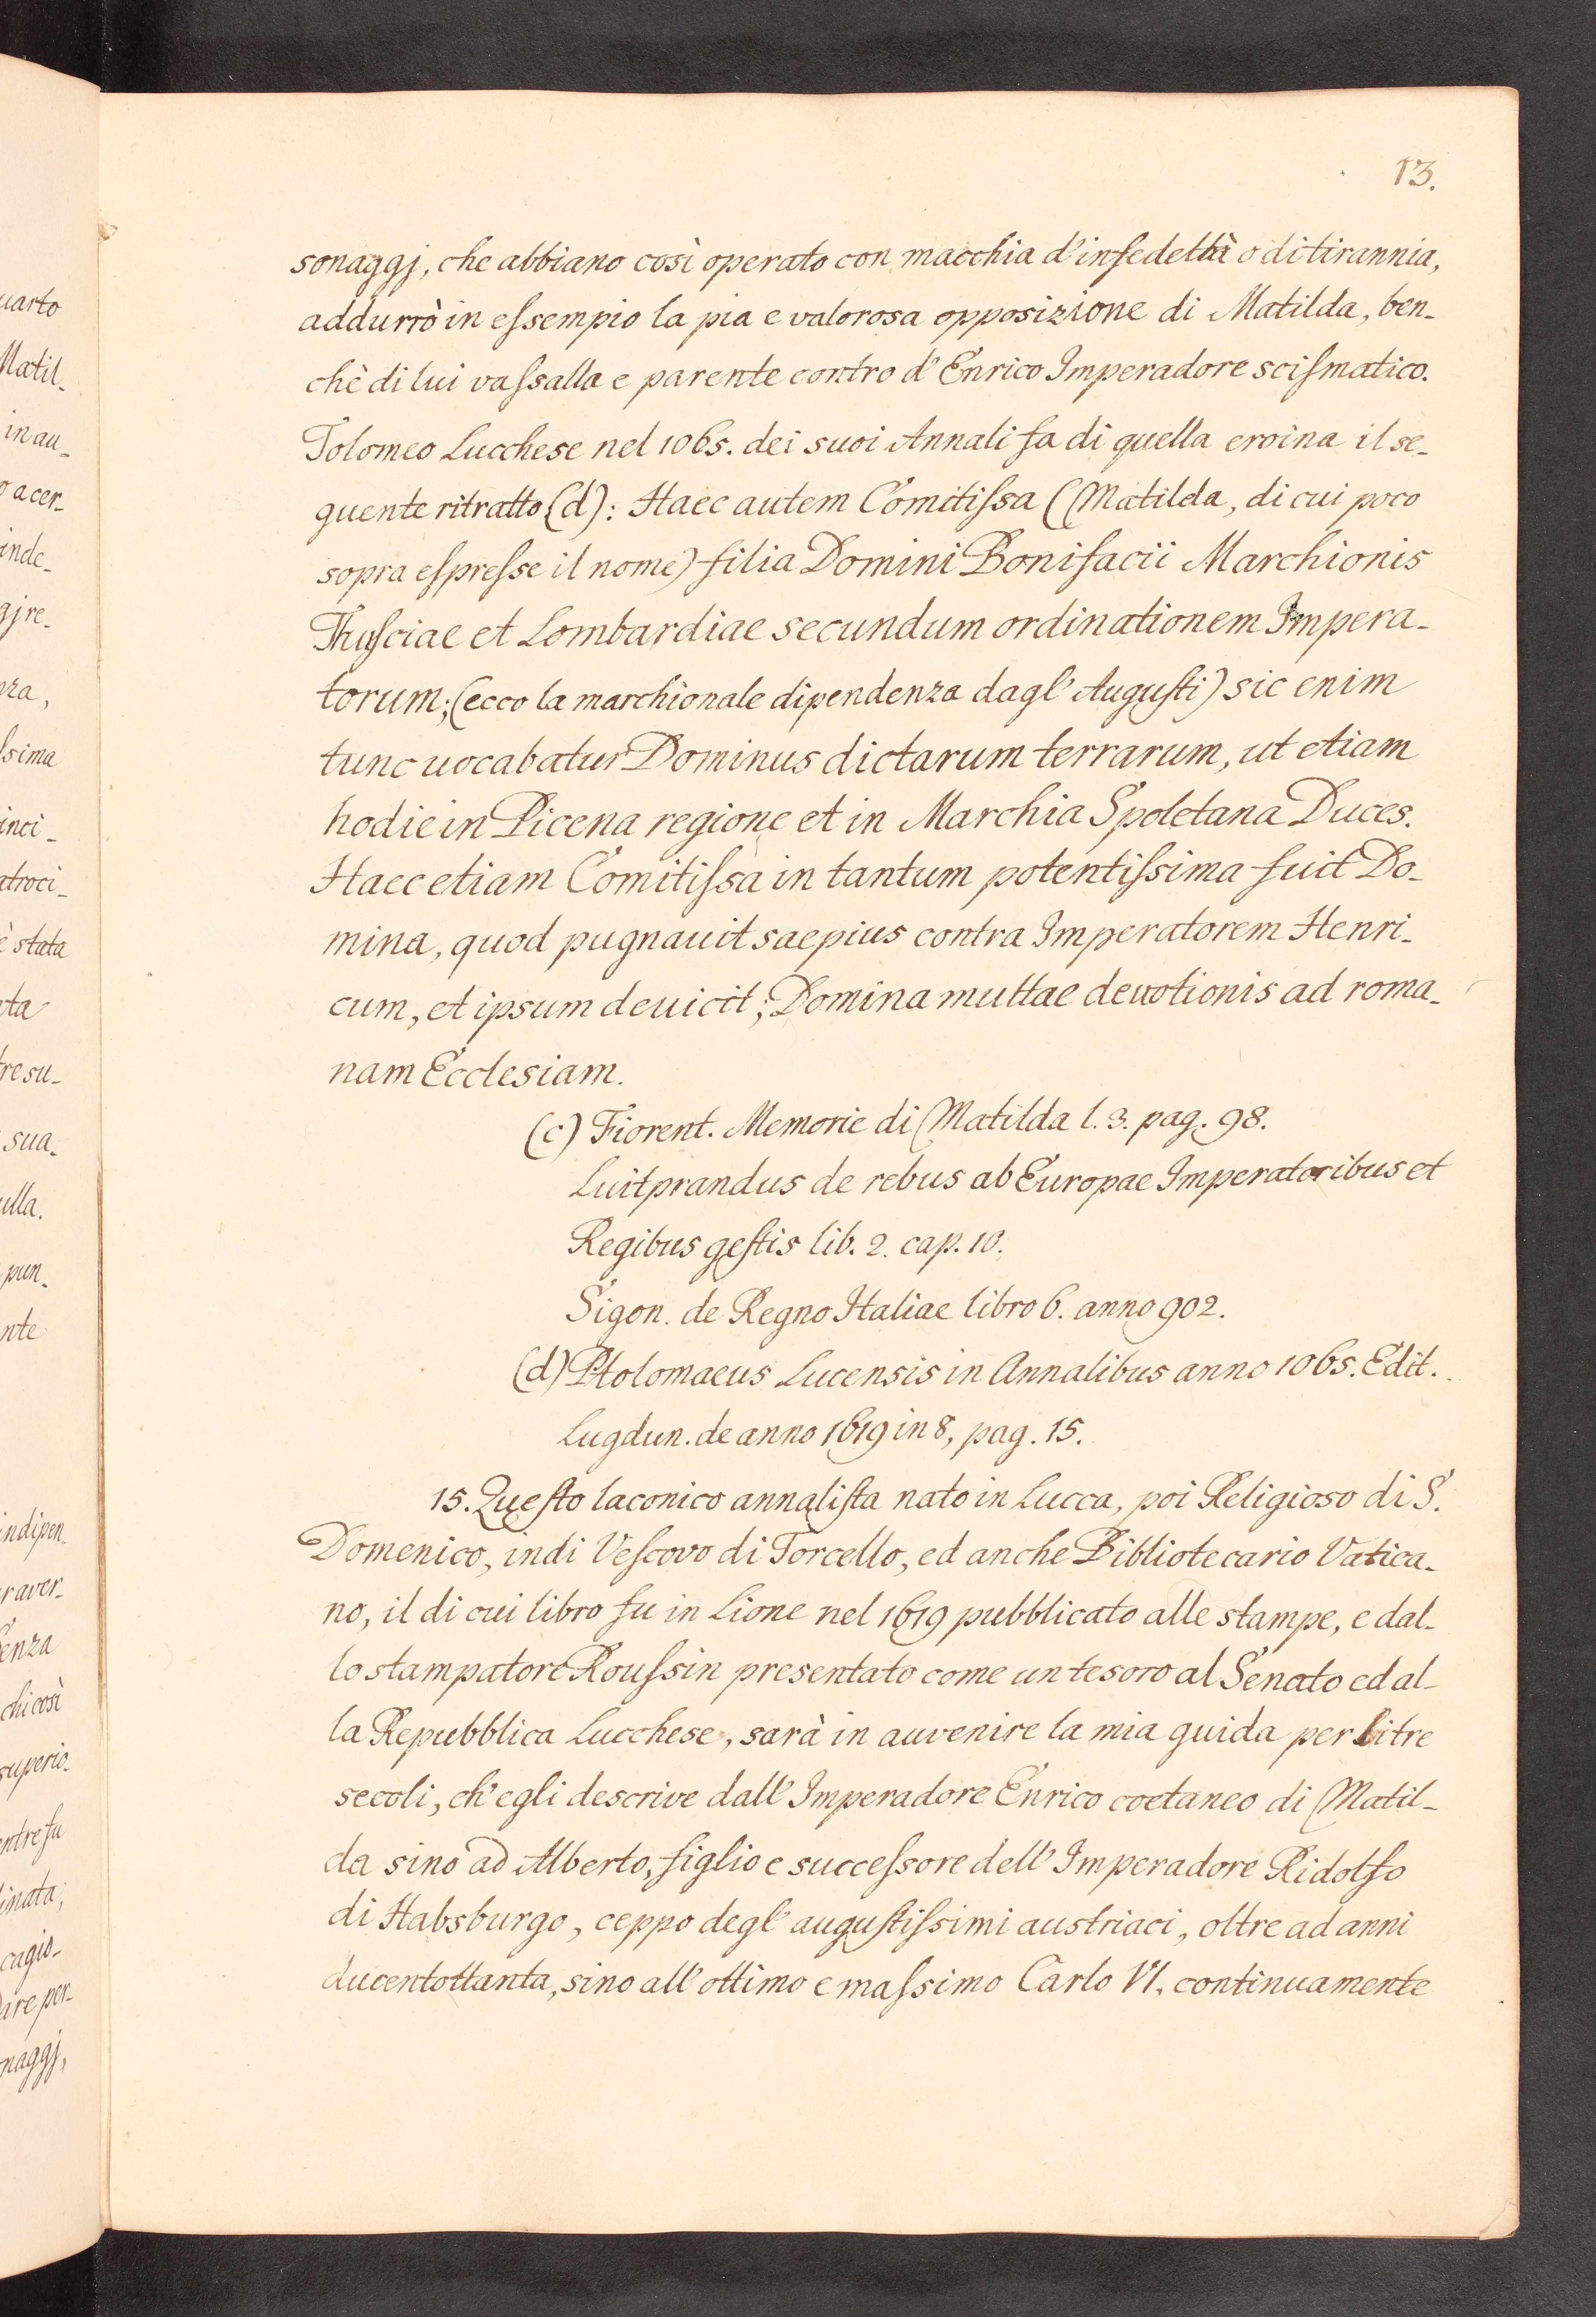 13.
sonaggj, che abbiano così operato con macchia d'infedeltà o di tirannia,
addurrò in essempio la pia e valorosa opposizione di Matilda, ben-
chè di lui vassalla e parente contro d'Enrico Imperadore scismatico.
Tolomeo Lucchese nel 1065. dei suoi Annali fa di quella eroina il se-
quente ritratto (d): Haec autem Comitissa (Matilda, di cui poco
sopra espresse il nome) filia Domini Bonifacii Marchionis
Thusciae et Lombardiae secundum ordinationem Impera-
torum; (ecco la marchionale dipendenza dagl' Augusti) sic enim
tunc uocabatur Dominus dictarum terrarum, ut etiam
hodie in Picena regione et in Marchia Spoletana Duces.
Haec etiam Comitissa in tantum potentissima fuit Do-
mina, quod pugnauit saepius contra Imperatorem Henri-
cum, et ipsum deuicit; Domina multae deuotionis ad roma-
nam Ecclesiam.
(c) Fiorent. Memorie di Matilda l. 3. pag. 98.
Luitprandus de rebus ab Europae Imperatoribus et
Regibus gestis lib. 2. cap. 10.
Sigon. de Regno Italiae libro 6. anno 902.
(d) Ptolomaeus Lucensis in Annalibus anno 1065. Edit.
Lugdun. de anno 1619 in 8, pag. 15.
15. Questo laconico annalista nato in Lucca, poi Religioso di S.
Domenico, indi Vescovo di Torcello, ed anche Bibliotecario Vatica-
no, il di cui libro fu in Lione nel 1619 pubblicato alle stampe, e dal-
lo stampatore Roussin presentato come un tesoro al Senato ed al-
la Repubblica Lucchese, sarà in auvenire la mia guida per li tre
secoli, ch'egli descrive dall' Imperadore Enrico coetaneo di Matil-
da sino ad Alberto, figlio e successore dell' Imperadore Ridolfo
di Habsburgo, ceppo degl' augustissimi austriaci, oltre ad anni
ducentottanta, sino all' ottimo e massimo Carlo VI. continuamente
uarto
Matil-
in au-
o acer-
inde-
gj re-
nza,
ssima
inci-
atroci-
è stata
ta
tre su-
sua-
ulla.
pun-
nte
indipen-
r aver-
enza
chi così
superio-
entre fu
inata,
cagio-
are per-
naggj,